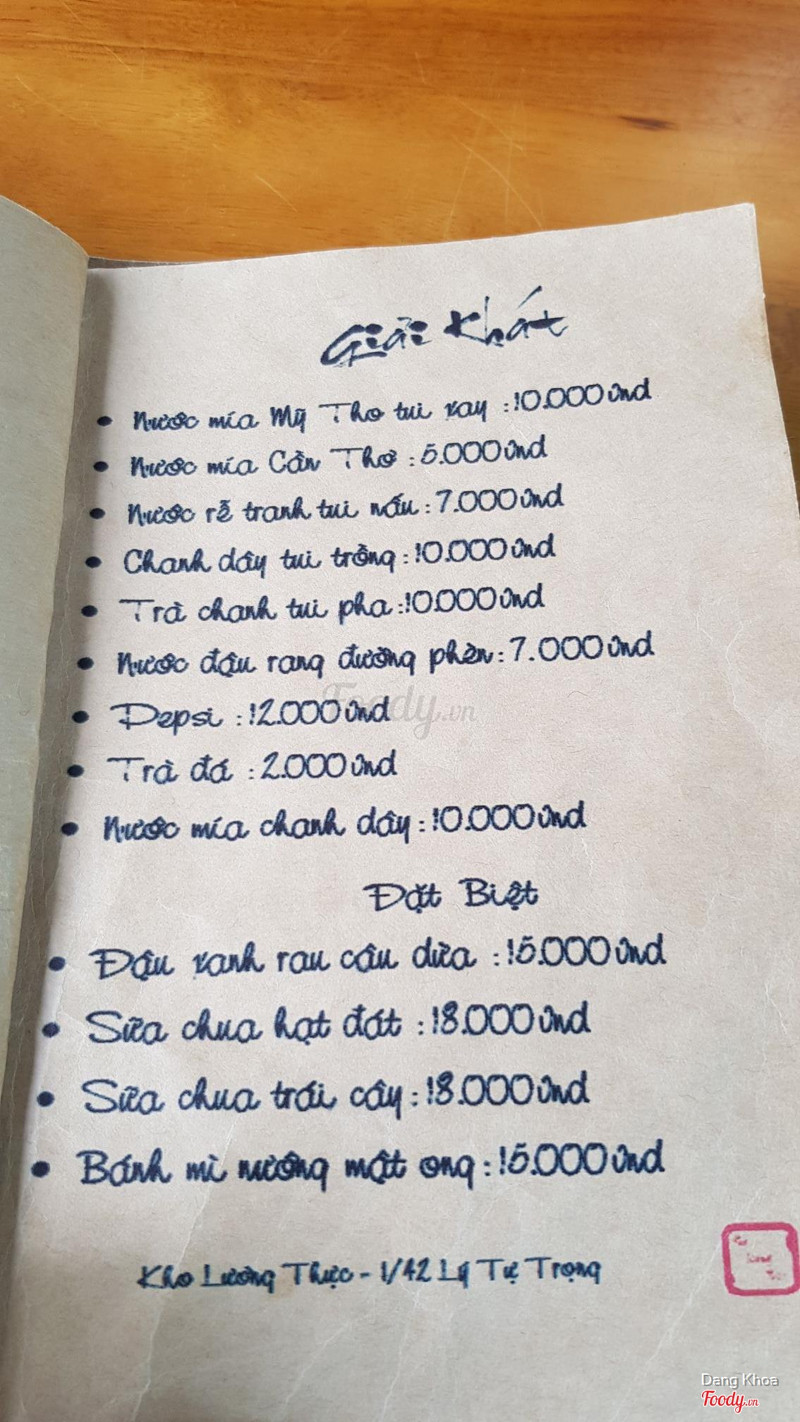 Giải Khát
• Nước mía Mỹ Tho tui xay : 10.000 vnd
• Nước mía Cần Thơ : 5.000 vnd
• Nước rễ tranh tui nấu : 7.000 vnd
• Chanh dây tui trồng : 10.000 vnd
• Trà chanh tui pha : 10.000 vnd
• Nước đậu rang đường phèn : 7.000 vnd
• Pepsi : 12.000 vnd
Foody.vn
• Trà đá : 2.000 vnd
• Nước mía chanh dây : 10.000 vnd
Đặt Biệt
• Đậu xanh rau câu dừa : 15.000 vnd
• Sữa chua hạt đát : 18.000 vnd
• Sữa chua trái cây : 18.000 vnd
• Bánh mì nướng mật ong : 15.000 vnd
Kho Lương Thực - 1/42 Lý Tự Trọng
Dang Khoa
Foody.vn